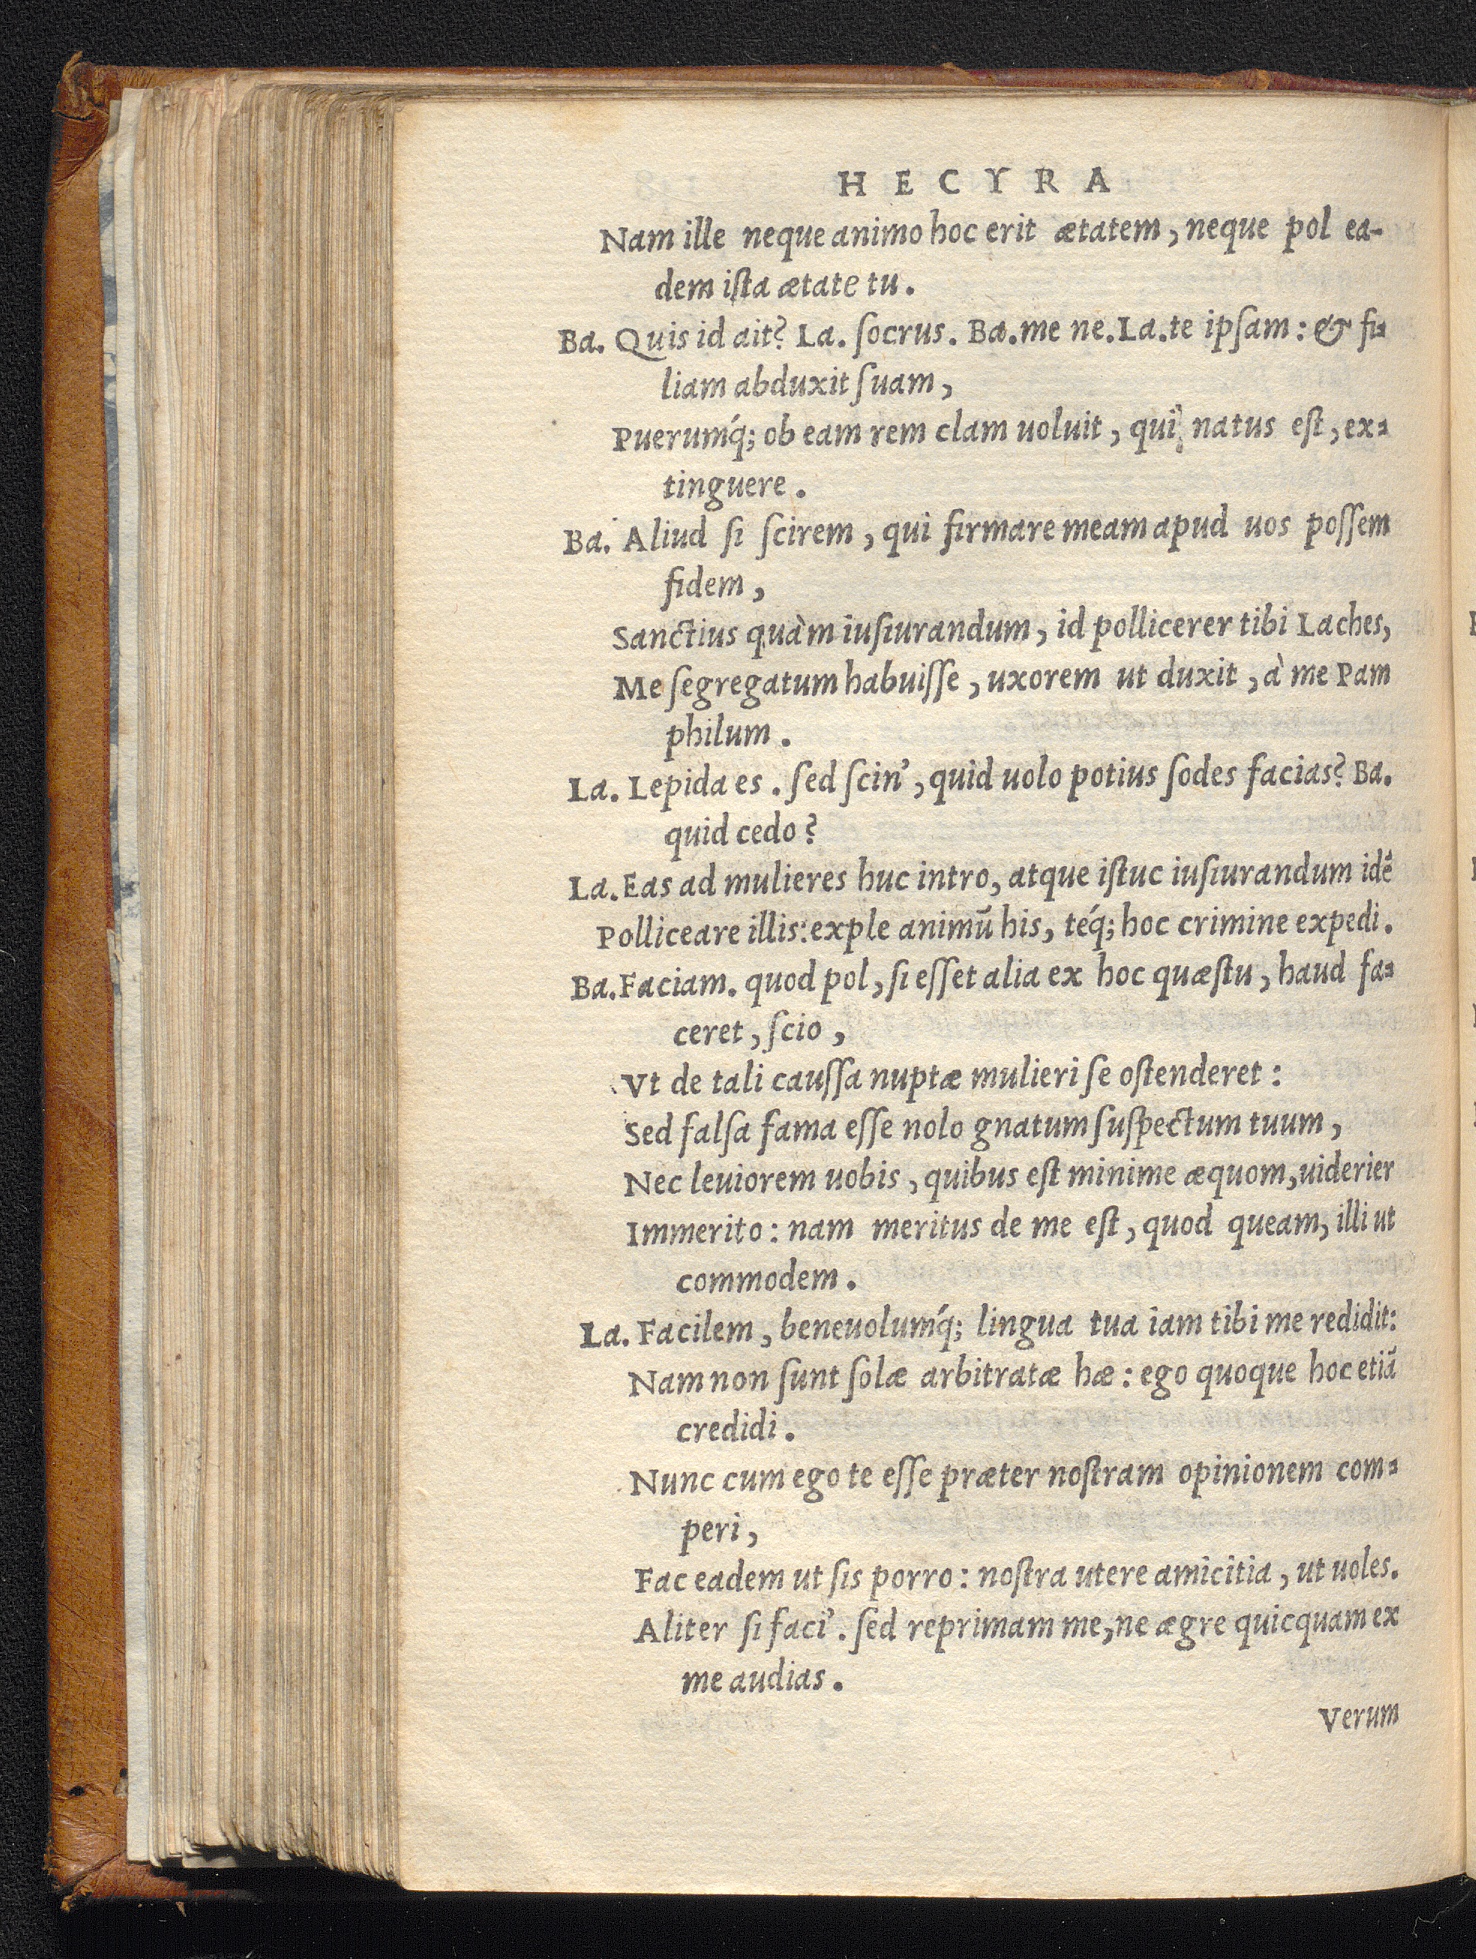 HECYRA
Nam ille neque animo hoc erit ætatem, neque pol ea-
dem iſta ætate tu.
Ba. Quis id ait? La. ſocrus. Ba. me ne. La. te ipſam: & fi-
liam abduxit ſuam,
Puerumq́; ob eam rem clam uoluit, qui natus eſt, ex-
tinguere.
Ba. Aliud ſi ſcirem, qui firmare meam apud uos poſſem
fidem,
Sanctius quàm iuſiurandum, id pollicerer tibi Laches,
Me ſegregatum habuiſſe, uxorem ut duxit, à me Pam
philum.
La. Lepida es. ſed ſcin', quid uolo potius ſodes facias? Ba.
quid cedo?
La. Eas ad mulieres huc intro, atque iſtuc iuſiurandum idẽ
Polliceare illis: exple animũ his, teq́; hoc crimine expedi.
Ba. Faciam. quod pol, ſi eſſet alia ex hoc quæſtu, haud fa-
ceret, ſcio,
Vt de tali cauſſa nuptæ mulieri ſe oſtenderet:
Sed falſa fama eſſe nolo gnatum ſuſpectum tuum,
Nec leuiorem uobis, quibus eſt minime æquom, uiderier
Immerito: nam meritus de me eſt, quod queam, illi ut
commodem.
La. Facilem, beneuolumq́; lingua tua iam tibi me redidit:
Nam non ſunt ſolæ arbitratæ hæ: ego quoque hoc etiã
credidi.
Nunc cum ego te eſſe præter noſtram opinionem com-
peri,
Fac eadem ut ſis porro: noſtra utere amicitia, ut uoles.
Aliter ſi faci'. ſed reprimam me, ne ægre quicquam ex
me audias.
Verum